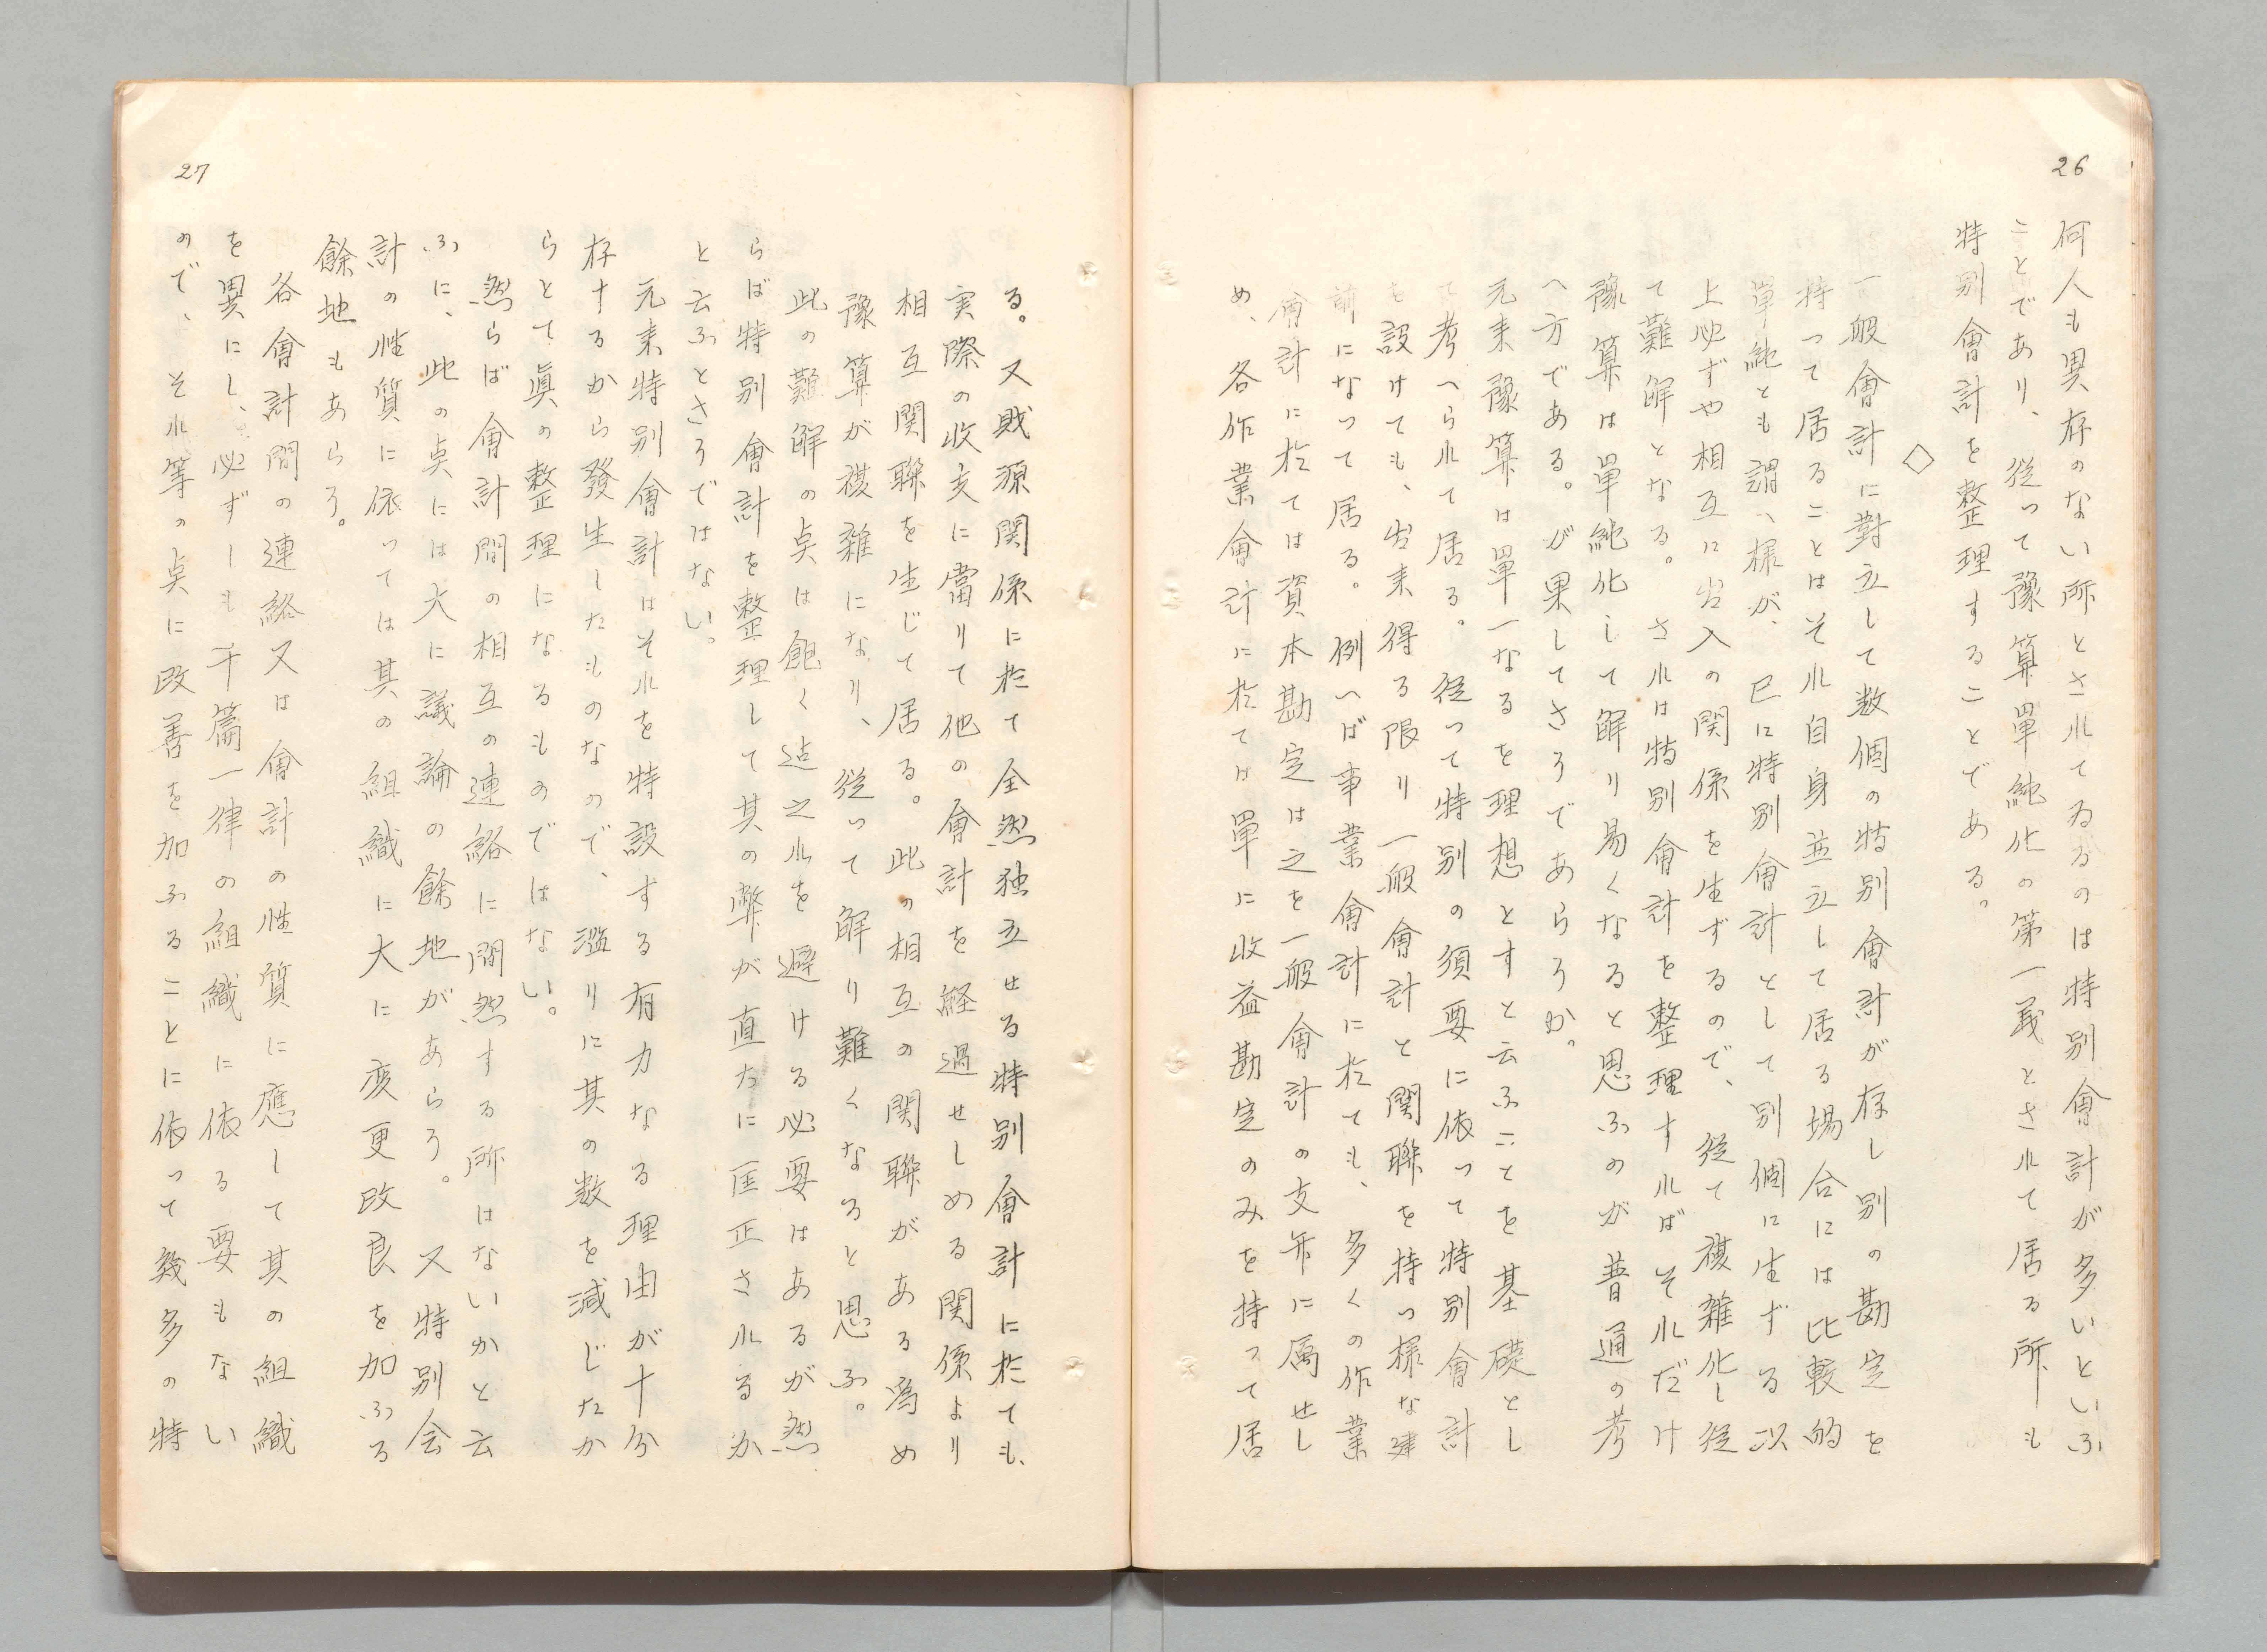 26
何人も異存のない所とされてゐるのは特別會計が多いといふ
ことであり、從って豫算單純化の第一義とされて居る所も
特別會計を整理することである。
◇
一般會計に對立して数個の特別會計が存し別の勘定を
持って居ることはそれ自身並立して居る場合には比較的
單純とも謂へ様が、已に特別會計として別個に生ずる以
上必ずや相互に出入の関係を生ずるので、從て複雑化し從
て難解となる。されば特別會計を整理すればそれだけ
豫算は單純化して解り易くなると思ふのが普通の考
へ方である。が果してさうであらうか。
元来豫算は單一なるを理想とすと云ふことを基礎とし
て考へられて居る。從って特別の須要に依って特別會計
を設けても、出来得る限り一般會計と関聯を持つ様な建
前になって居る。例へば事業會計に於ても、多くの作業
會計に於ては資本勘定は之を一般會計の支弁に属せし
め、各作業會計に於ては單に收益勘定のみを持って居
27
る。又財源関係に於て全然独立せる特別會計に於ても、
実際の收支に當りて他の會計を経過せしめる関係より
相互関聯を生じて居る。此の相互の関聯がある為め
豫算が複雑になり、從って解り難くなると思ふ。
此の難解の点は飽く迠之れを避ける必要はあるが然
らば特別會計を整理して其の弊が直ちに匡正されるか
と云ふとさうではない。
元来特別會計はそれを特設する有力なる理由が十分
存するから發生したものなので、濫りに其の数を減じたか
らとて眞の整理になるものではない。
然らば會計間の相互の連絡に間然する所はないかと云
ふに、此の点には大に議論の餘地があらう。又特別会
計の性質に依っては其の組織に大に変更改良を加ふる
餘地もあらう。
各會計間の連絡又は會計の性質に應して其の組織
を異にし、必ずしも千篇一律の組織に依る要もない
ので、それ等の点に改善を加ふることに依って幾多の特